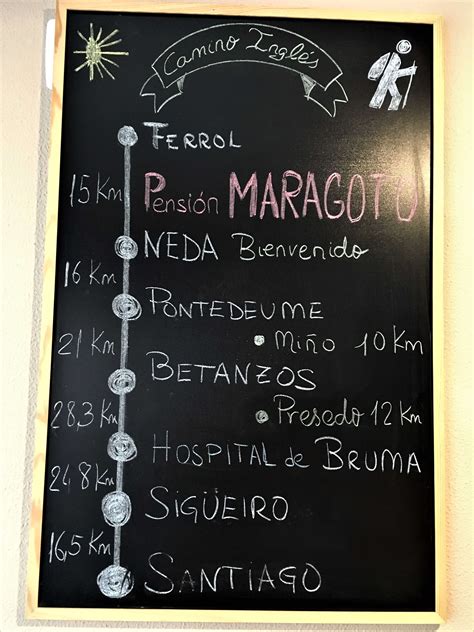 Camino Inglés
FERROL
15 Km
Pensión MARAGOTO
NEDA Bienvenido
16 Km
PONTEDEUME
21 Km
• Miño 10 Km
BETANZOS
28,3 Km
• Presedo 12 Km
HOSPITAL de BRUMA
24,8 Km
SIGÜEIRO
16,5 Km
SANTIAGO